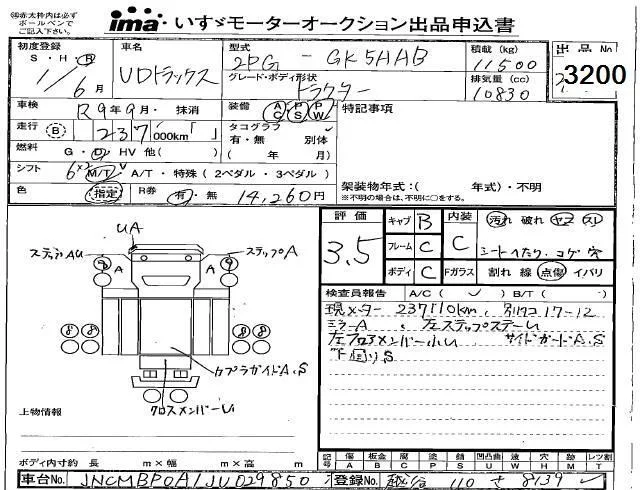 ㊟赤太枠内は必ず
ボールペンで
ご記入下さい。
ima いすゞモーターオークション出品申込書
初度登録
S・H・R
1年6月
車名
UDトラックス
型式
2PG - GK5HAB
グレード・ボディ形状
トラクター
積載 (kg)
11500
排気量 (cc)
10830
出品No
3200
車検
R9年9月・抹消
装備 AC PS PW
特記事項
走行 (B) 237 000km「 」
タコグラフ
有・無 別体
( 年 月)
燃料
G・D・HV 他( )
シフト
6×2 M/T・A/T・特殊(2ペダル・3ペダル)
色 指定 R券 有・無 14,260円
架装物年式:( 年式)・不明
※不明の場合は、不明に○をする。
評価
3.5
キャブ B
フレーム C
ボディ C
内装 C
汚れ 破れ ヤニ スレ
シートへたり、コゲ穴
Fガラス 割れ 線 点傷 イバリ
UA
ステップA
9 A A 9
8 8 8 8
カプラガイドA.S
クロスメンバーU
検査員報告 A/C( ✓ ) B/T( )
現メーター 237110km、
ミラーA、左ステップステーU
サイドガードA.S
下回りS
上物情報
ボディ内寸約 長 m×幅 m×高 m
記号 傷 A 板金 B 腐 C 塗 P 錆 S 凹凸曲 U 欠 W 穴 H 跡 M レツ割 T
車台No. JNCMBP0A1JU029850
登録No.